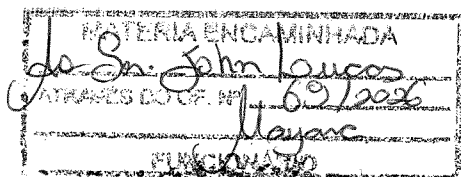 MATÉRIA ENCAMINHADA
Ao Sr. John Loucos
ATRAVÉS DO OF. Nº 69/2026
Mayanc
FUNCIONÁRIO